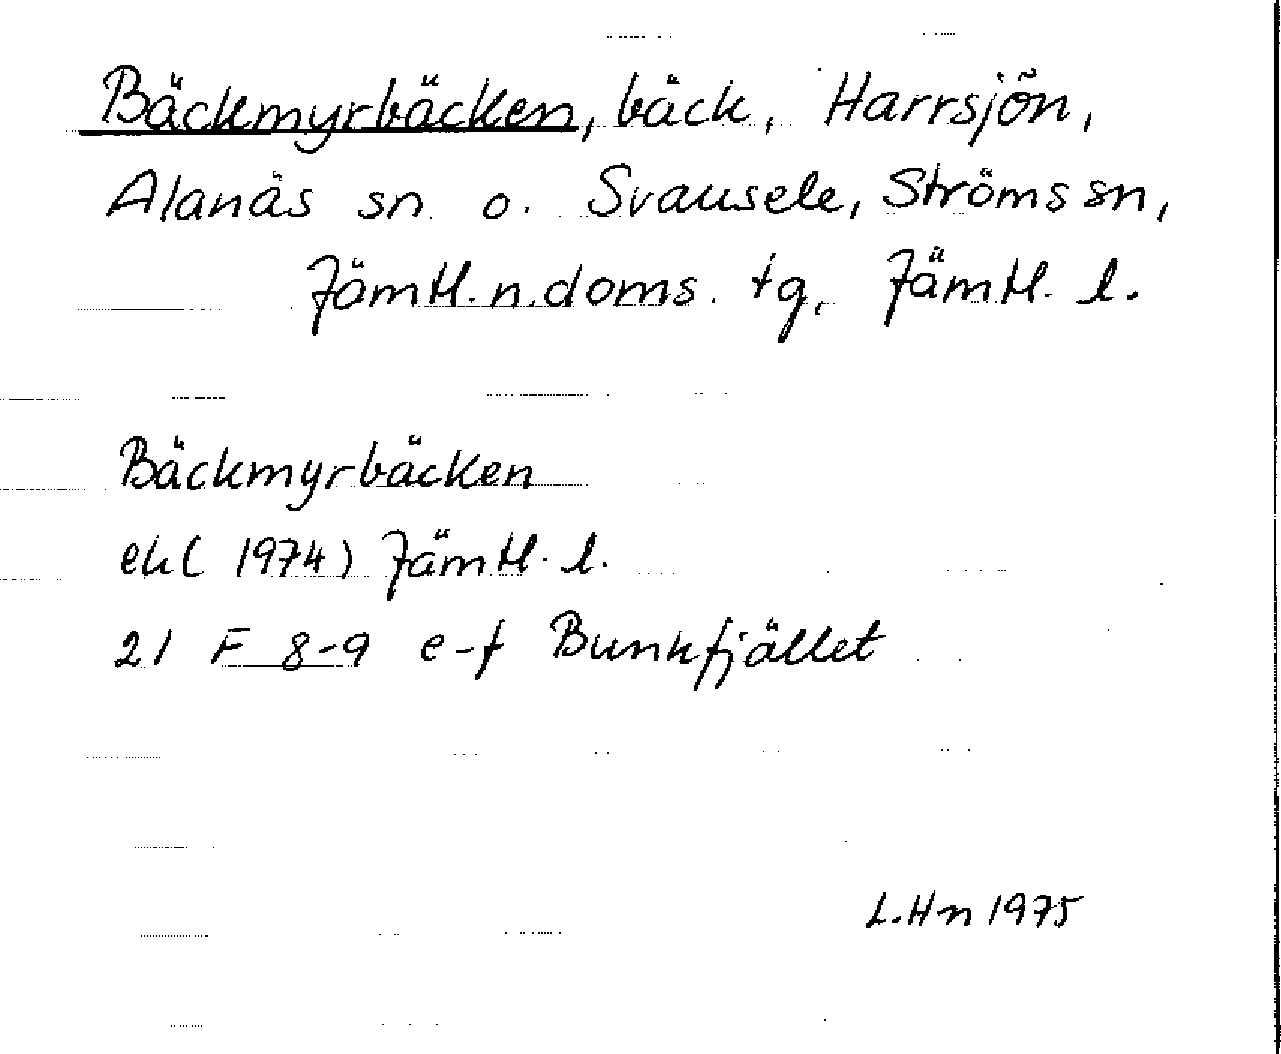 Bäckmyrbäcken, bäck, Harrsjön,
Alanäs sn o. Svausele, Ströms sn,
Jämtl. n. doms. tg, Jämtl. l.
Bäckmyrbäcken
ek (1974) Jämtl. l.
21 F 8-9 e-f Bunkfjället
L.Hn 1975